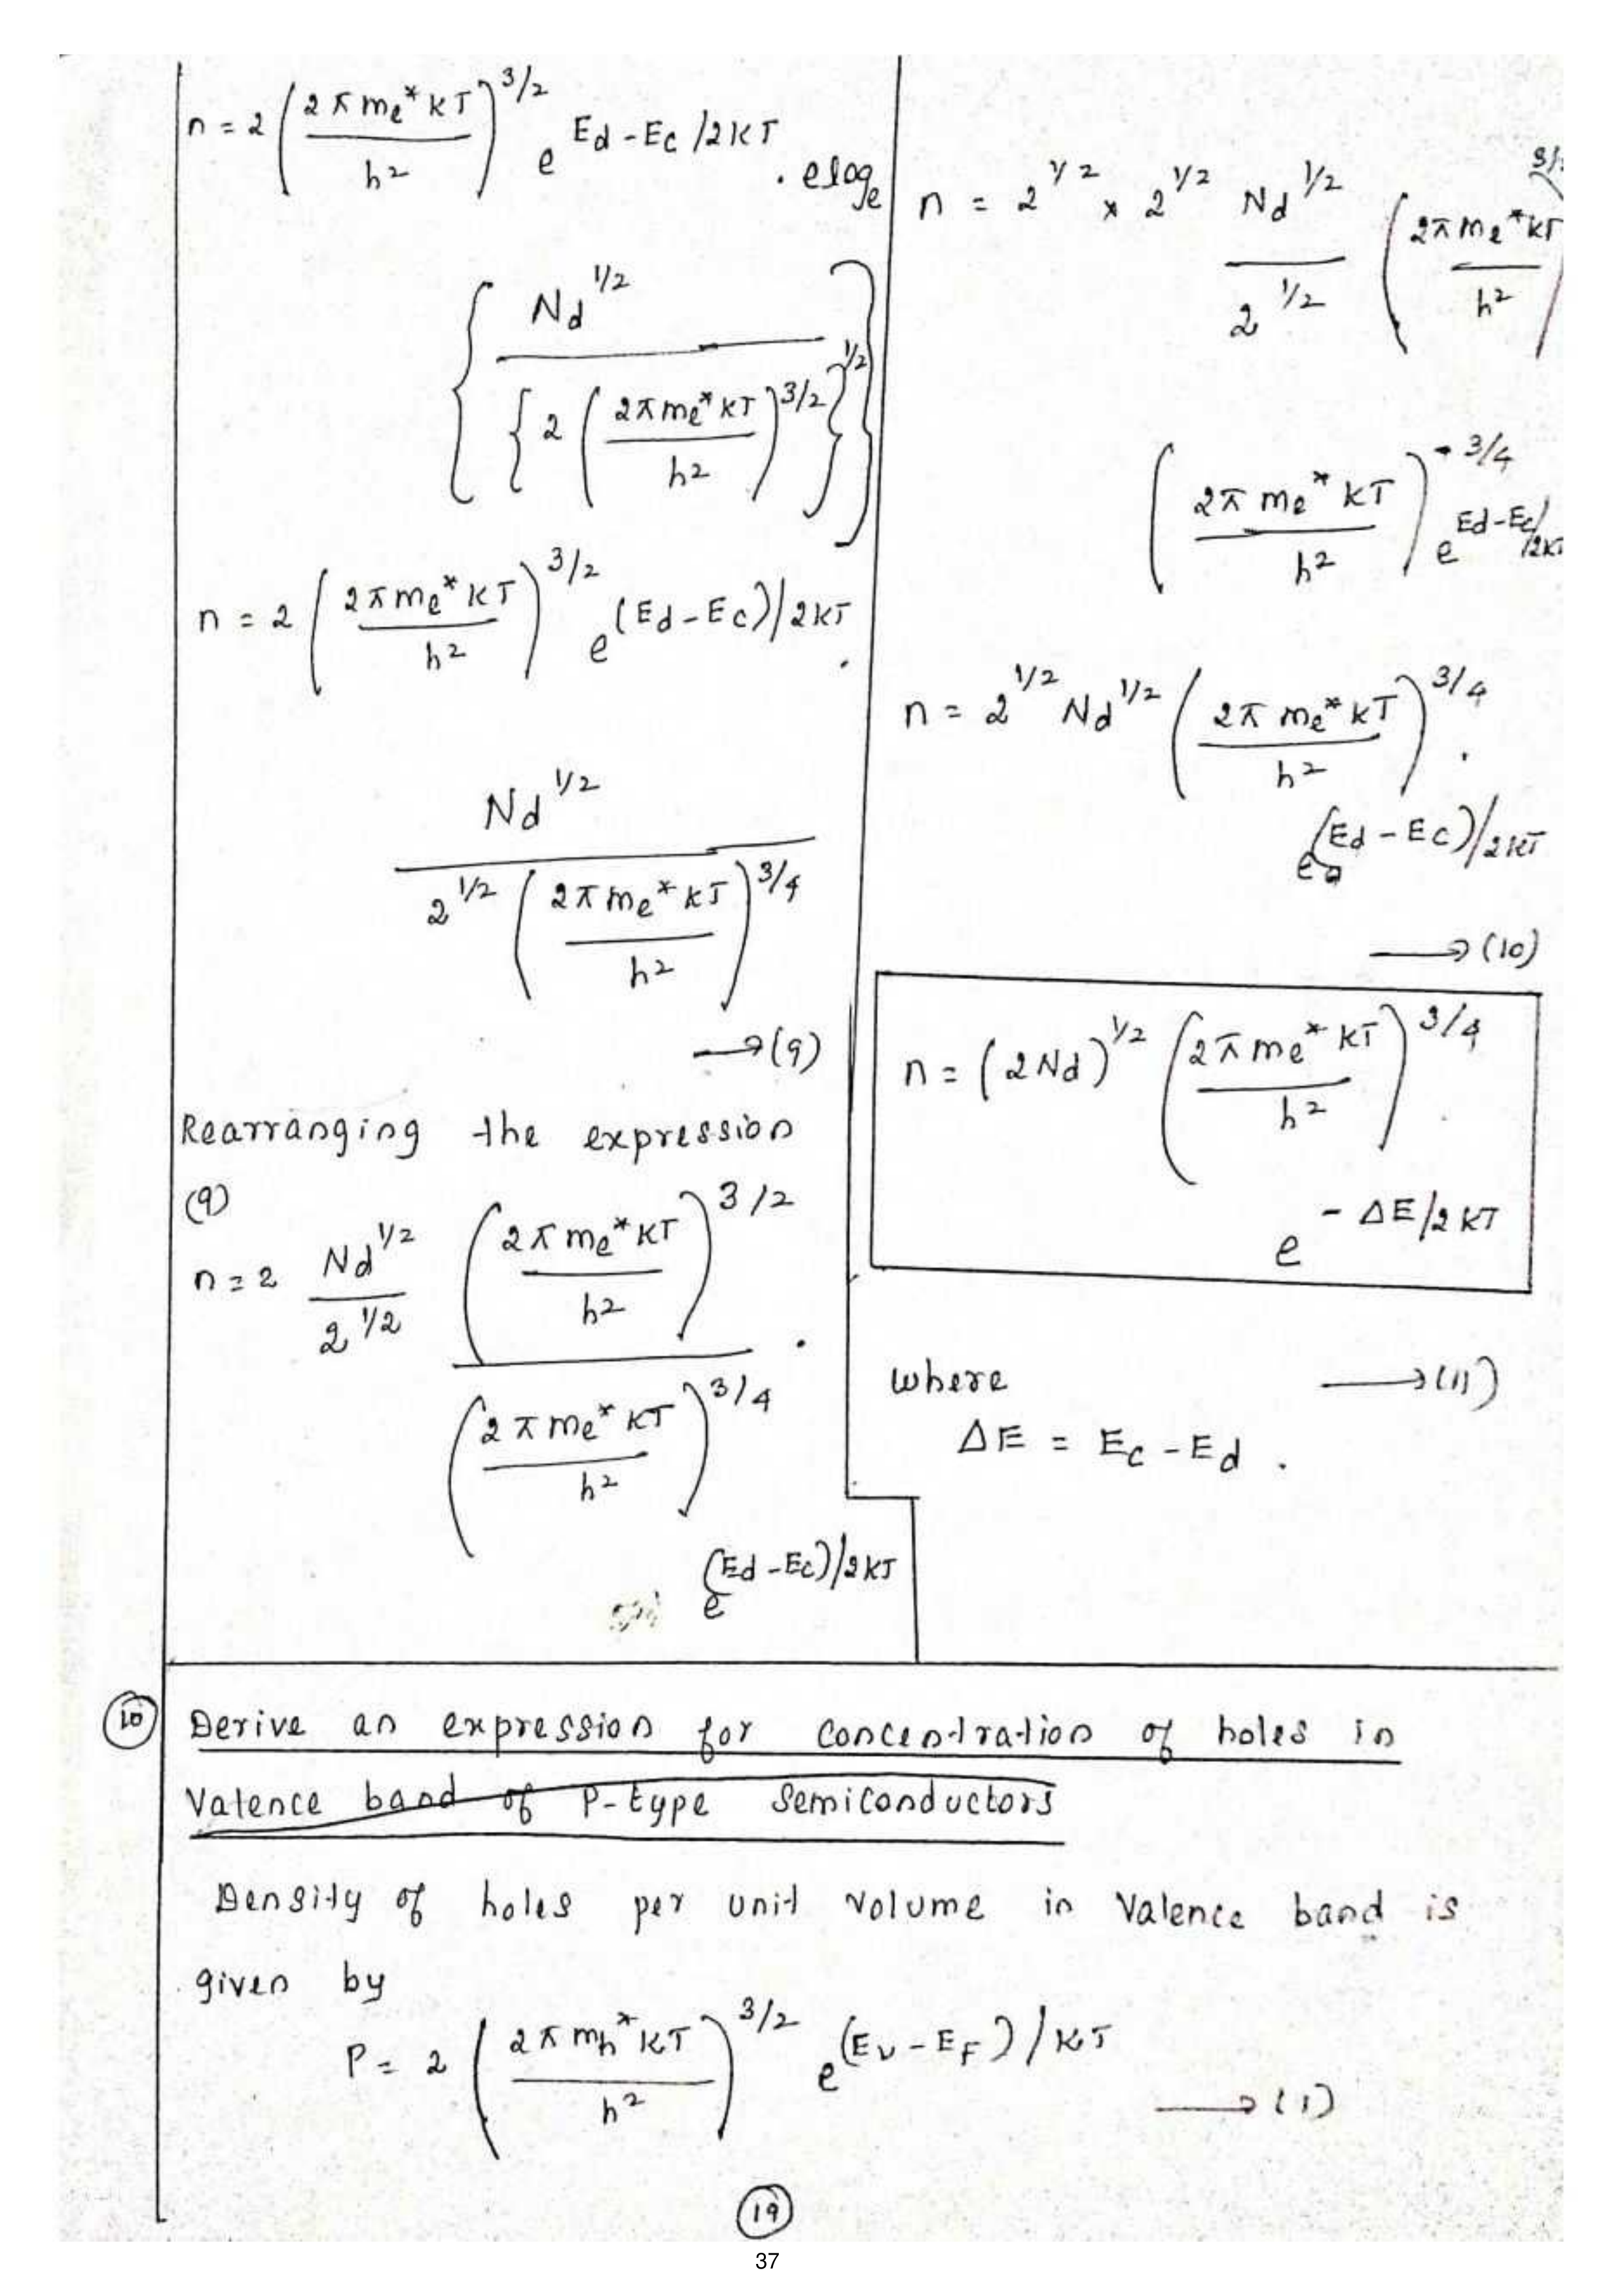 n = 2 (2πme*kT / h²)^3/2 e^Ed-Ec/2kT . e^loge
{Nd^1/2 / {2 (2πme*kT / h²)^3/2}^1/2}
n = 2 (2πme*kT / h²)^3/2 e^(Ed-Ec)/2kT .
Nd^1/2 / 2^1/2 (2πme*kT / h²)^3/4
→(9)
Rearranging the expression
(9)
n = 2 Nd^1/2 / 2^1/2 (2πme*kT / h²)^3/2 / (2πme*kT / h²)^3/4 .
e^(Ed-Ec)/2kT
n = 2^1/2 × 2^1/2 Nd^1/2 / 2^1/2 (2πme*kT / h²)
(2πme*kT / h²)^-3/4 e^Ed-Ec/2kT
n = 2^1/2 Nd^1/2 (2πme*kT / h²)^3/4 .
e^(Ed-Ec)/2kT
→(10)
n = (2Nd)^1/2 (2πme*kT / h²)^3/4 .
e^-ΔE/2kT
where →(11)
ΔE = Ec - Ed .
10 Derive an expression for concentration of holes in
Valence band of P-type Semiconductors
Density of holes per unit volume in Valence band is
given by
P = 2 (2πmh*kT / h²)^3/2 e^(Ev-EF)/kT
→(1)
19
37